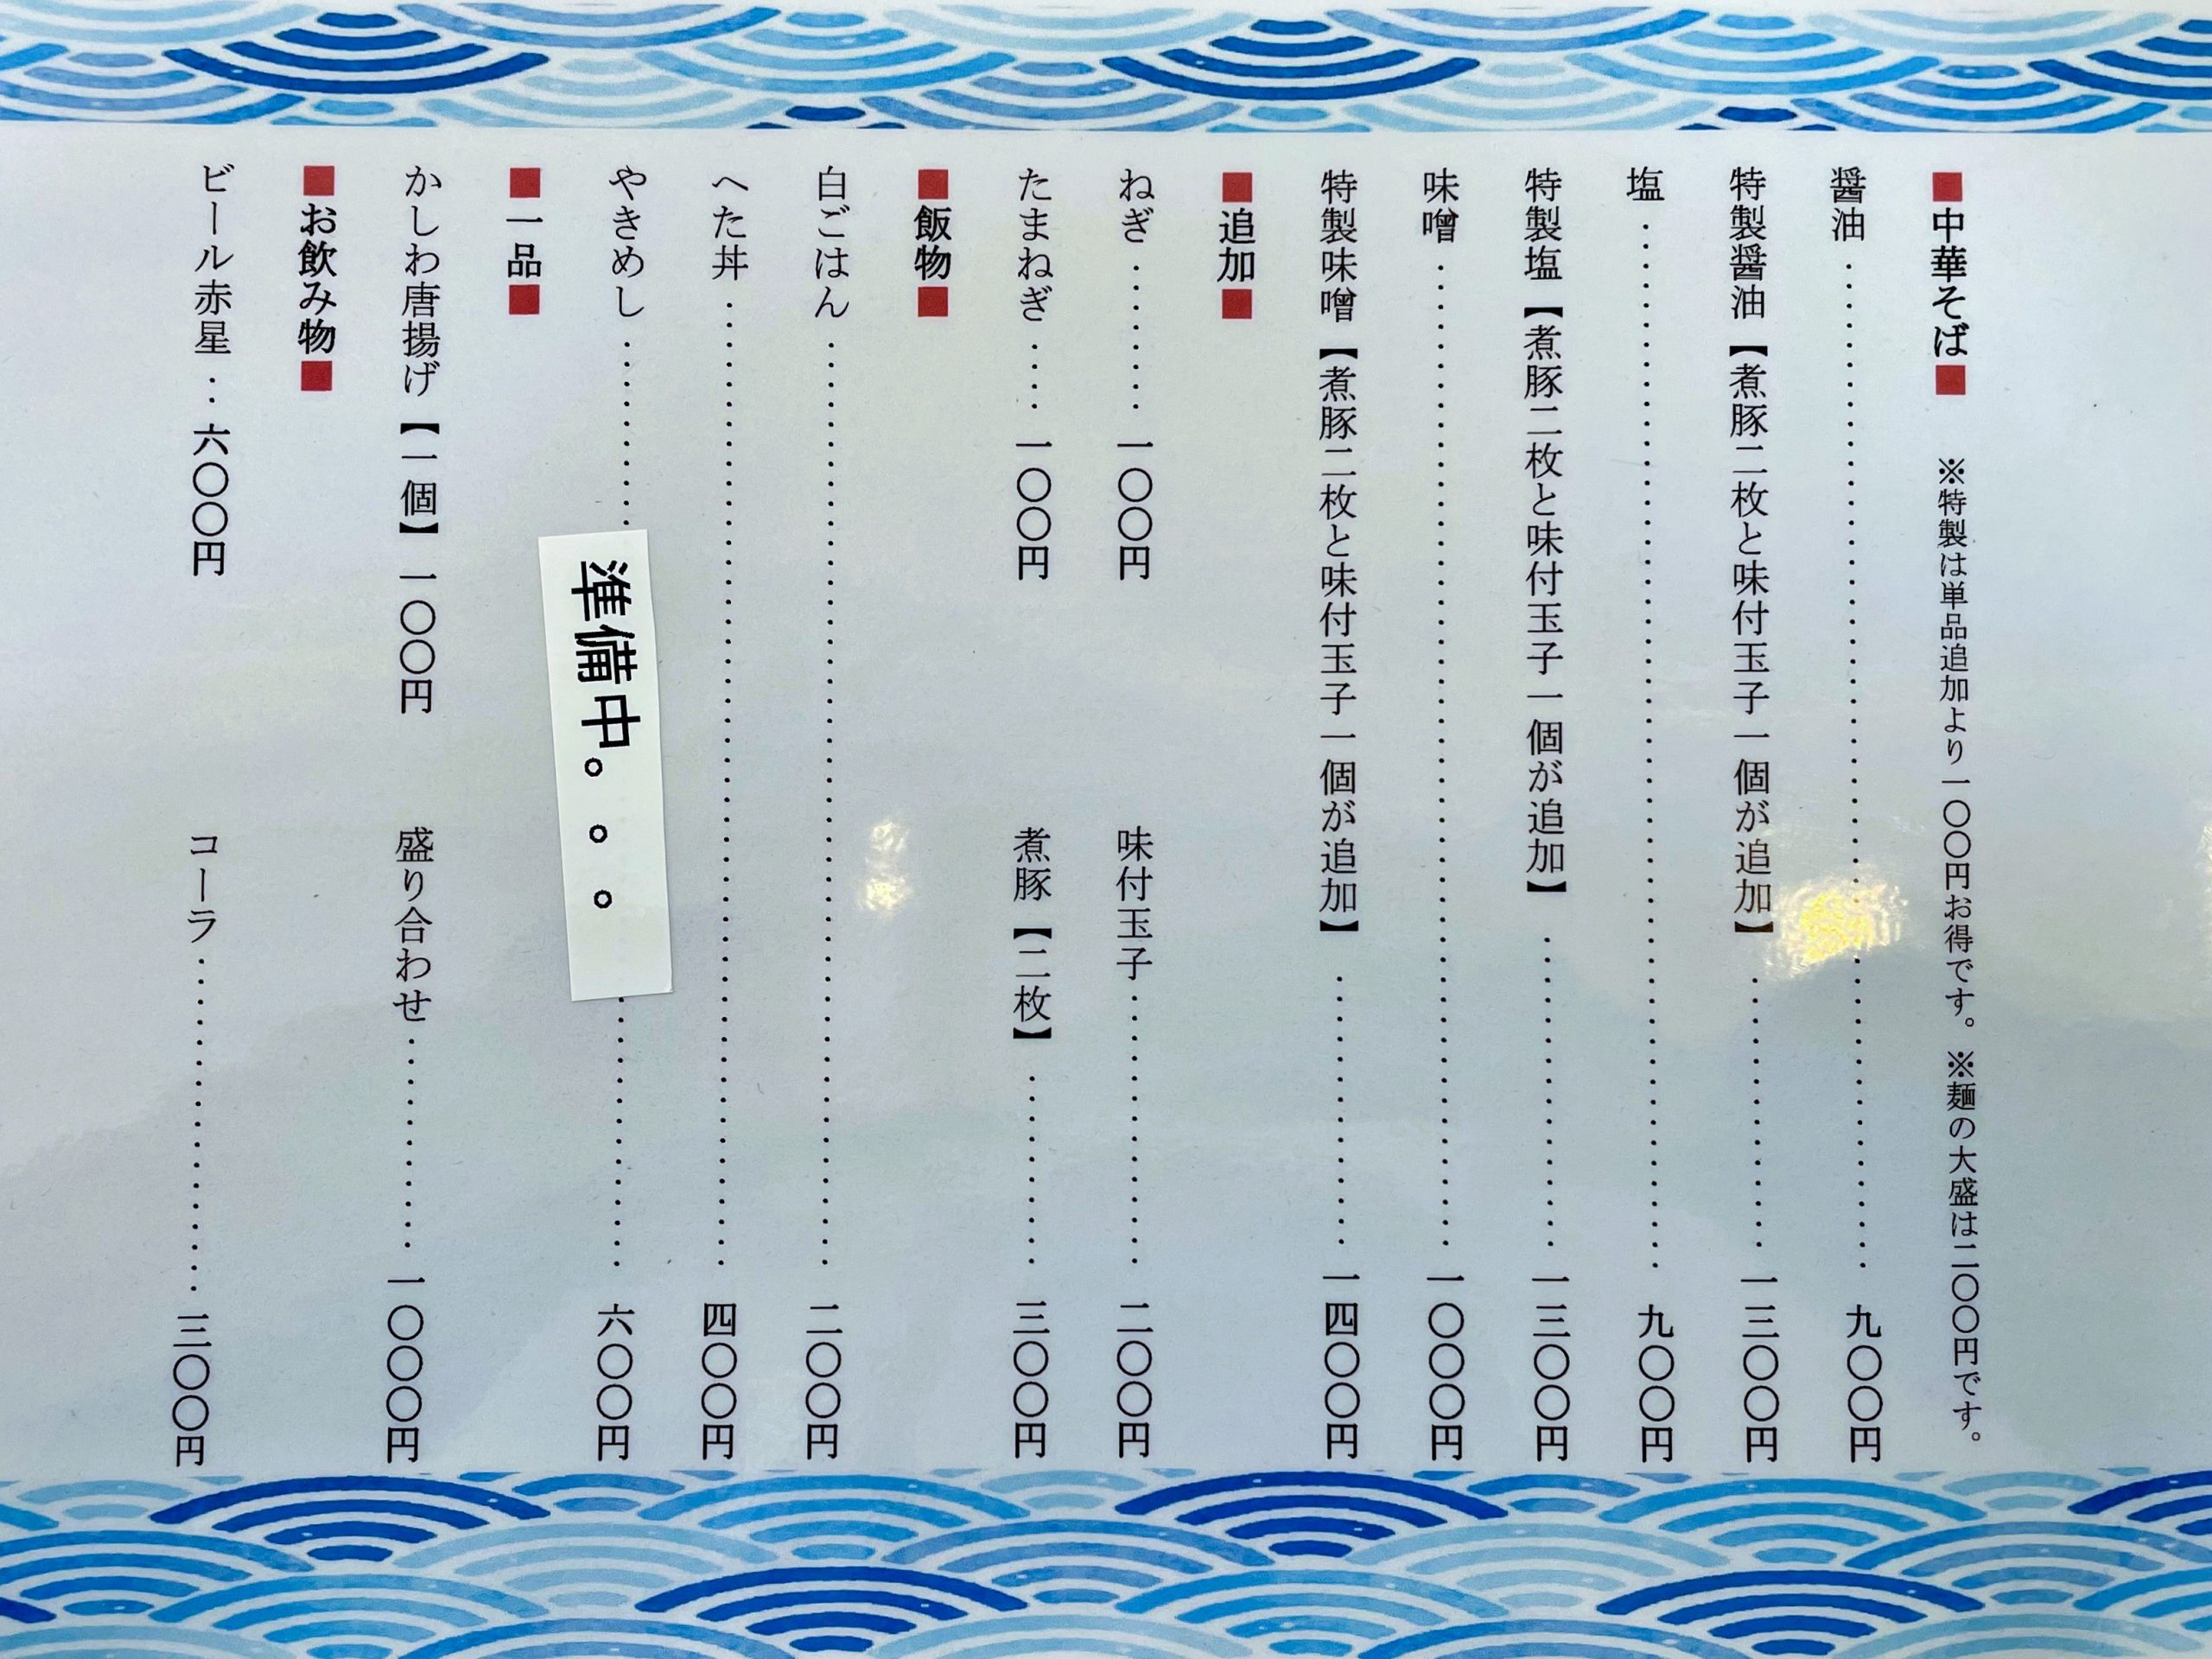 ■中華そば■ ※特製は単品追加より一〇〇円お得です。※麺の大盛は二〇〇円です。
醤油…………九〇〇円
特製醤油【煮豚二枚と味付玉子一個が追加】…………一三〇〇円
塩…………九〇〇円
特製塩【煮豚二枚と味付玉子一個が追加】…………一三〇〇円
味噌…………一〇〇〇円
特製味噌【煮豚二枚と味付玉子一個が追加】…………一四〇〇円
■追加■
ねぎ…………一〇〇円 味付玉子…………二〇〇円
たまねぎ……一〇〇円 煮豚【二枚】…………三〇〇円
■飯物■
白ごはん…………二〇〇円
へた丼…………四〇〇円
やきめし…………六〇〇円
準備中。。。
■一品■
かしわ唐揚げ【一個】一〇〇円 盛り合わせ…………一〇〇〇円
■お飲み物■
ビール赤星‥六〇〇円 コーラ…………三〇〇円